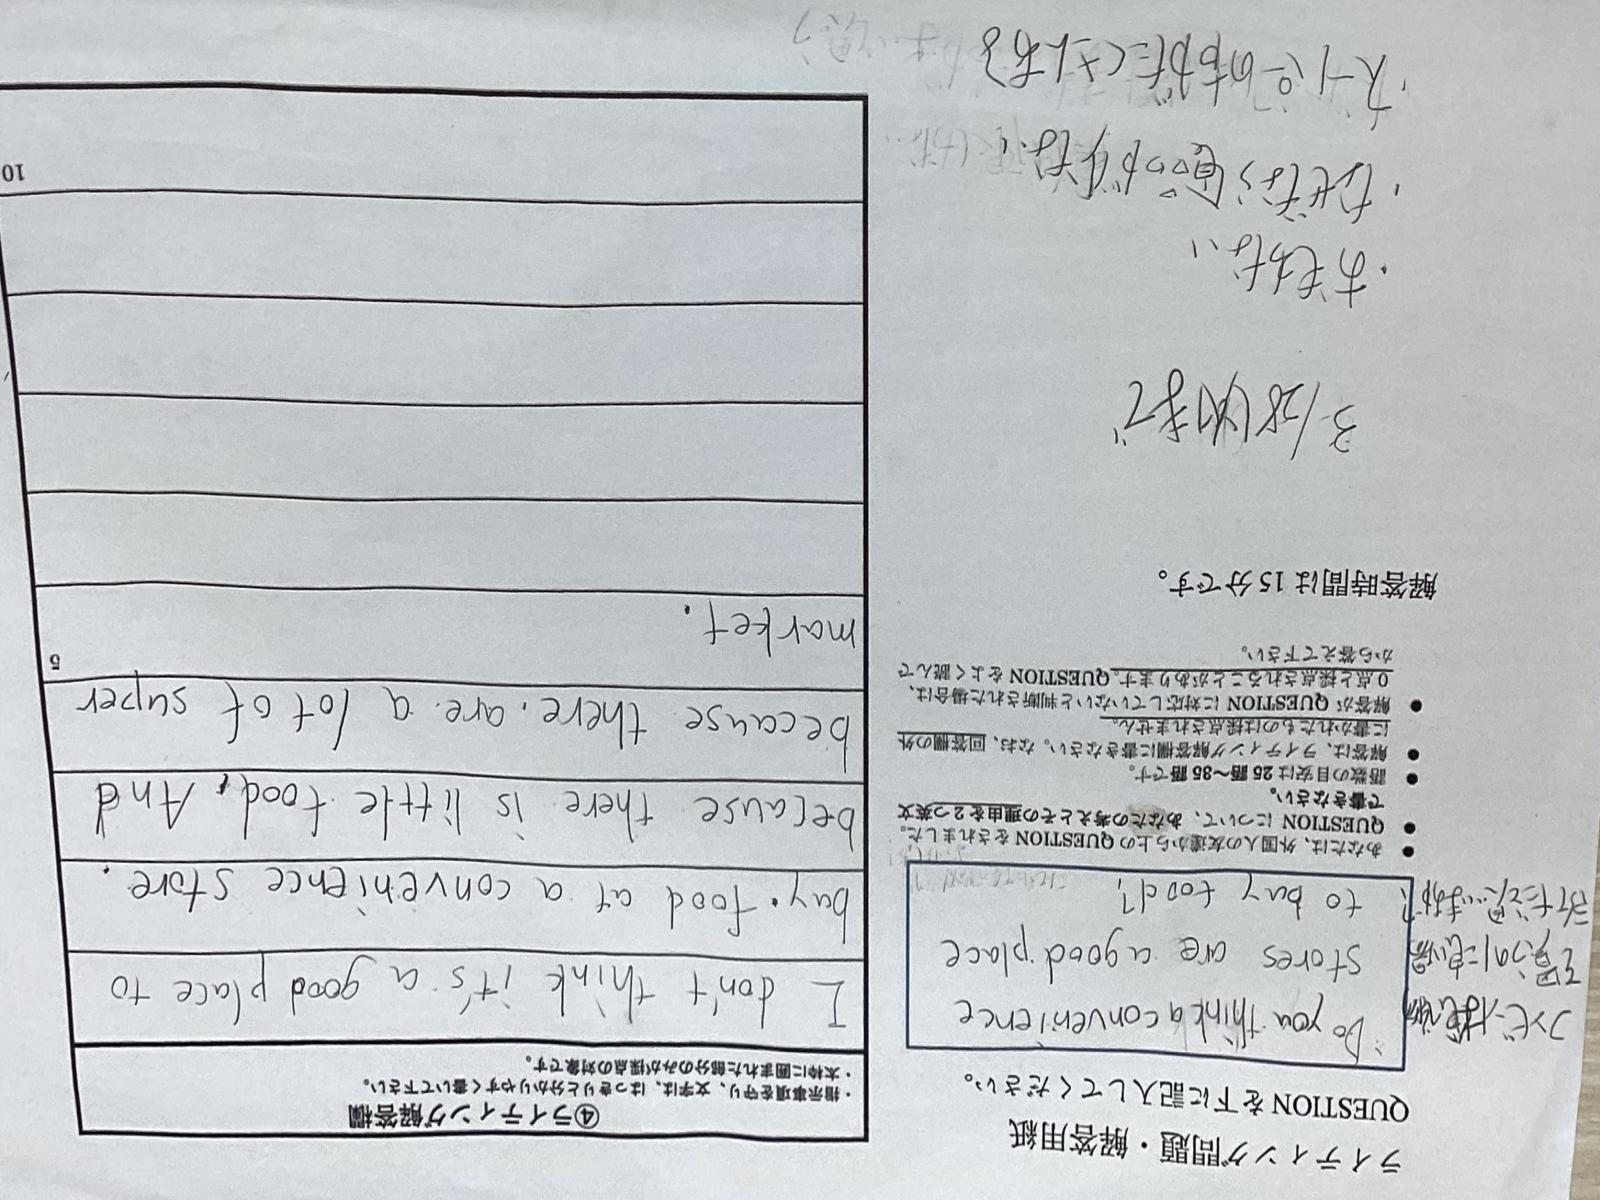 ライティング問題・解答用紙
QUESTIONを下に記入してください。
Do you think a convenience
stores are a good place
to buy food?
コンビニは食
を買うのに良い場
所だと思いますか?
● あなたは、外国人の友達から上のQUESTIONをされました。
● QUESTIONについて、あなたの考えとその理由を2つ英文
で書きなさい。
● 語数の目安は25語~35語です。
● 解答は、ライティング解答欄に書きなさい。なお、回答欄の外
に書かれたものは採点されません。
● 解答がQUESTIONに対応していないと判断された場合は、
0点と採点されることがあります。QUESTIONをよく読んで
から答えて下さい。
解答時間は15分です。
3/28(火)まで
・おもわない
・なぜなら食べ物が少ない
・スーパーのものがたくさんある
④ライティング解答欄
・指示事項を守り、文字は、はっきりと分かりやすく書いて下さい。
・太枠に囲まれた部分のみが採点の対象です。
I don't think it's a good place to
buy food at a convenience store.
because there is little food. And
because there are a lot of super
market.
5
10